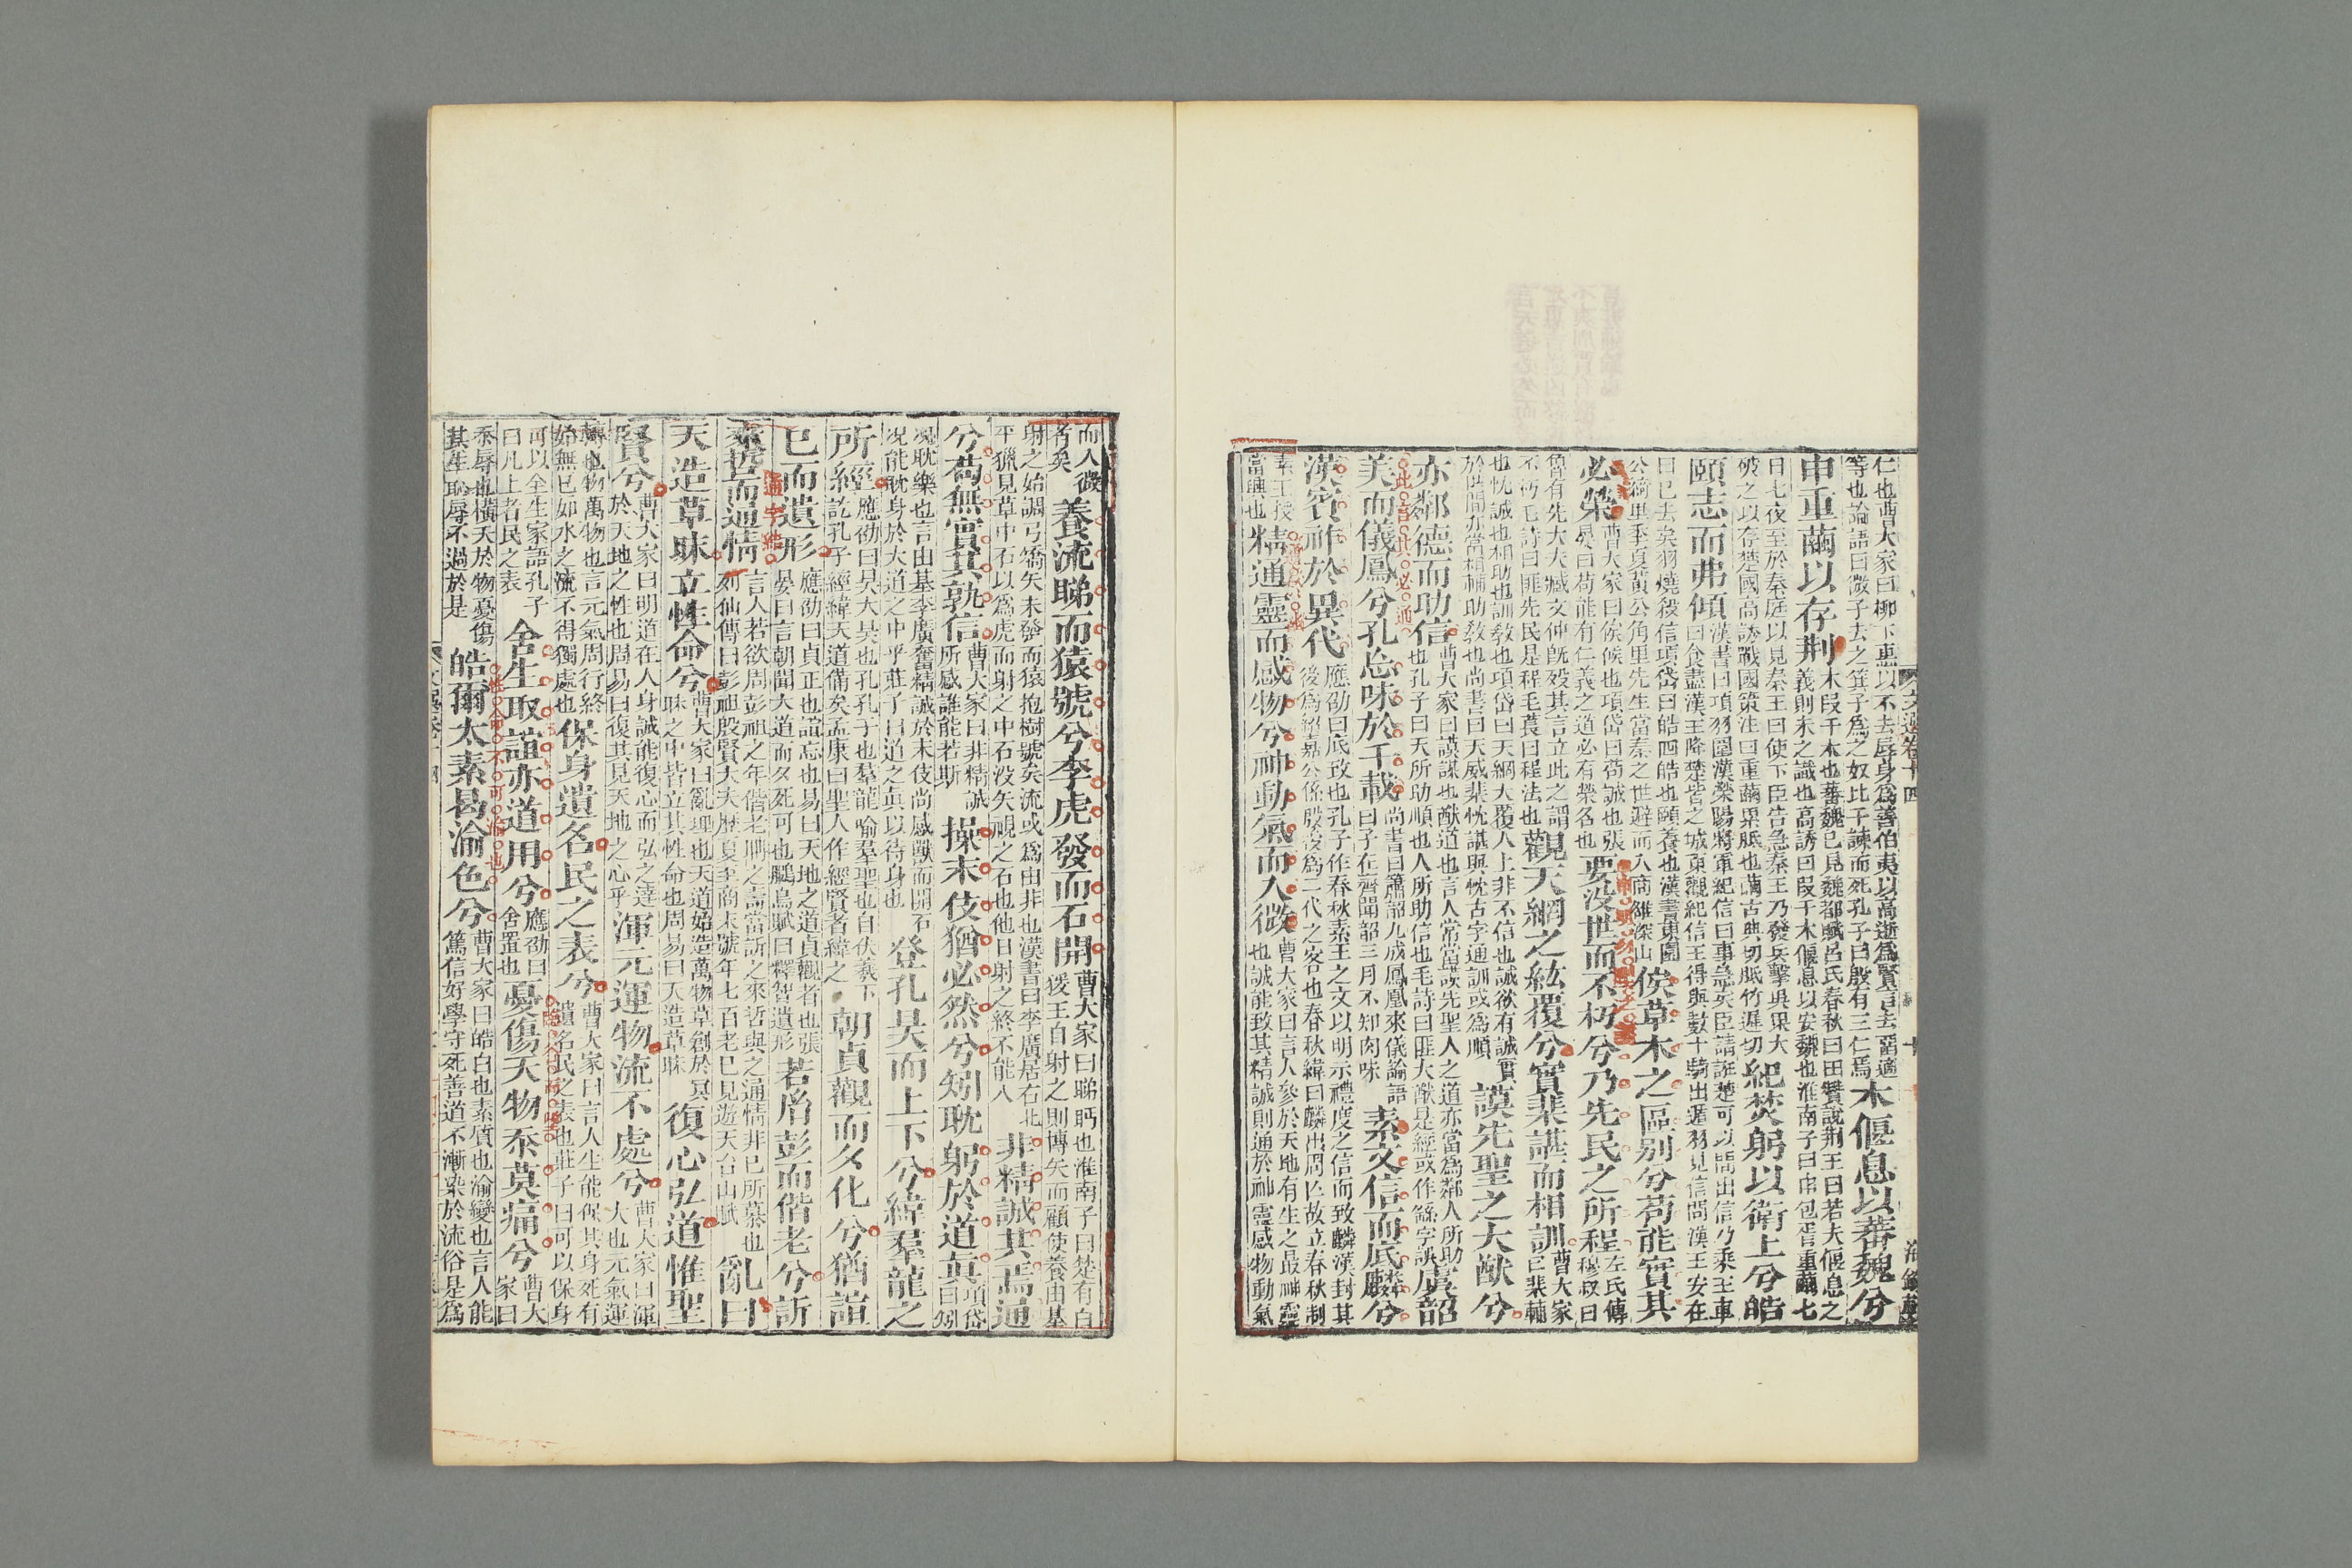 仁也曹大家曰柳下惠以不去辱身爲善伯夷以高逝爲賢言去留適
等也論語曰微子去之箕子爲之奴比干諫而死孔子曰殷有三仁焉
木偃息以蕃魏兮
申重繭以存荆
木段干木也蕃魏已見魏都賦呂氏春秋曰田贊說荆王曰若夫偃息之
義則未之識也高誘曰段干木偃息以安魏也淮南子曰申包胥重繭七
日七夜至於秦庭以見秦王曰使下臣告急秦王乃發兵擊吳果大
破之以存楚國高誘戰國策注曰重繭累胝也繭古典切胝竹遲切
紀焚躬以衛上兮皓
頤志而弗傾
漢書曰項羽圍漢滎陽將軍紀信曰事急矣臣請誑楚可以間出信乃乘王車
曰食盡漢王降楚皆之城東觀紀信王得與數十騎出遁羽見信問漢王安在
曰已去矣羽燒殺信項岱曰皓四皓也頤養也漢書東園
公綺里季夏黃公角里先生當秦之世避而入商雒深山
侯草木之區別兮苟能實其
必榮
曹大家曰侯候也項岱曰苟誠也張
晏曰苟能有仁義之道必有榮名也
要没世而不朽兮乃先民之所程
左氏傳
穆叔曰
魯有先大夫臧文仲旣歿其言立此之謂
不朽毛詩曰匪先民是程毛萇曰程法也
觀天網之紘覆兮實棐諶而相訓
曹大家
曰棐輔
也忱誠也相助也訓敎也項岱曰天網大覆人上非不信也誠欲有誠實
於世間亦當相輔助敎也尚書曰天威棐忱諶與忱古字通訓或爲順
謨先聖之大猷兮
亦鄰德而助信
曹大家曰謨謀也猷道也言人常當謨先聖人之道亦當爲鄰人所助
也孔子曰天所助順也人所助信也毛詩曰匪大猷是經或作繇字誤
虞韶
美而儀鳳兮孔忘味於千載
尚書曰簫韶九成鳳凰來儀論語
曰子在齊聞韶三月不知肉味
素文信而底麟兮
漢賓祚於異代
應劭曰底致也孔子作春秋素王之文以明示禮度之信而致麟漢封其
後爲紹嘉公係殷後爲二代之客也春秋緯曰麟出周亡故立春秋制
素王授
當興也
精通靈而感物兮神動氣而入微
曹大家曰言人參於天地有生之最神靈
也誠能致其精誠則通於神靈感物動氣
而入微
者矣
養流睇而猿號兮李虎發而石開
曹大家曰睇眄也淮南子曰楚有白
猨王自射之則搏矢而顧使養由基
射之始調弓矯矢未發而猿抱樹號矣流或爲由非也漢書曰李廣居右北
平獵見草中石以爲虎而射之中石没矢視之石也他日射之終不能入
非精誠其焉通
兮苟無實其孰信
曹大家曰非精誠
所感誰能若斯
操末伎猶必然兮矧耽躬於道眞
項岱
曰矧
況耽樂也言由基李廣奮精誠於末伎尚感獸而開石
況能耽身於大道之中乎莊子曰道之眞以待身也
登孔昊而上下兮緯羣龍之
所經
應劭曰昊大昊也孔孔子也羣龍喻羣聖也自伏羲下
訖孔子經緯天道備矣孟康曰聖人作經賢者緯之
朝貞觀而夕化兮猶諠
已而遺形
應劭曰貞正也諠忘也易曰天地之道貞觀者也張
晏曰言朝聞大道而夕死可也鵩鳥賦曰釋智遺形
若胤彭而偕老兮訴
來哲而通情
言人若欲周彭祖之年偕老聃之壽當訴之來哲與之通情非己所慕也
列仙傳曰彭祖殷賢大夫歷夏至商末號年七百老已見遊天台山賦
亂曰
天造草昧立性命兮
曹大家曰亂理也天道始造萬物草創於冥
昧之中皆立其性命也周易曰天造草昧
復心弘道惟聖
賢兮
曹大家曰明道在人身誠能復心而弘之達
於天地之性也周易曰復其見天地之心乎
渾元運物流不處兮
曹大家曰渾
大也元氣運
轉也物萬物也言元氣周行終
始無已如水之流不得獨處也
保身遺名民之表兮
曹大家曰言人生能保其身死有
遺名民之表也莊子曰可以保身
可以全生家語孔子
曰凡上者民之表
舍生取誼亦道用兮
應劭曰
舍置也
憂傷夭物忝莫痛兮
曹大
家曰
忝辱也橫夭於物憂傷
其生恥辱不過於是
皓爾太素曷渝色兮
曹大家曰皓白也素質也渝變也言人能
篤信好學守死善道不漸染於流俗是爲